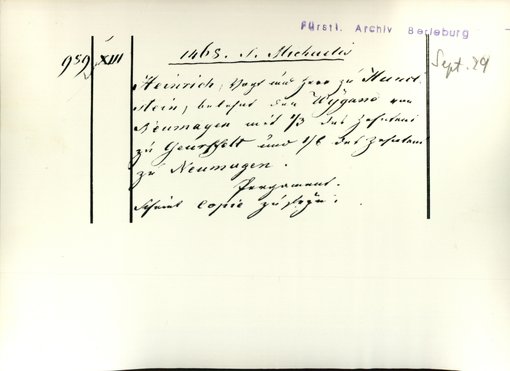 Fürstl. Archiv Berleburg
959 XIII 1465. S. Michaelis Sept. 29
Heinrich, Vogt und Herr zu Hunol-
stein, belehnt den Wygand von
Neumagen mit 1/3 des Zehnten
zu und 1/6 des Zehnten
zu Neumagen.
Pergament.
Scheint Copie zu seyn.